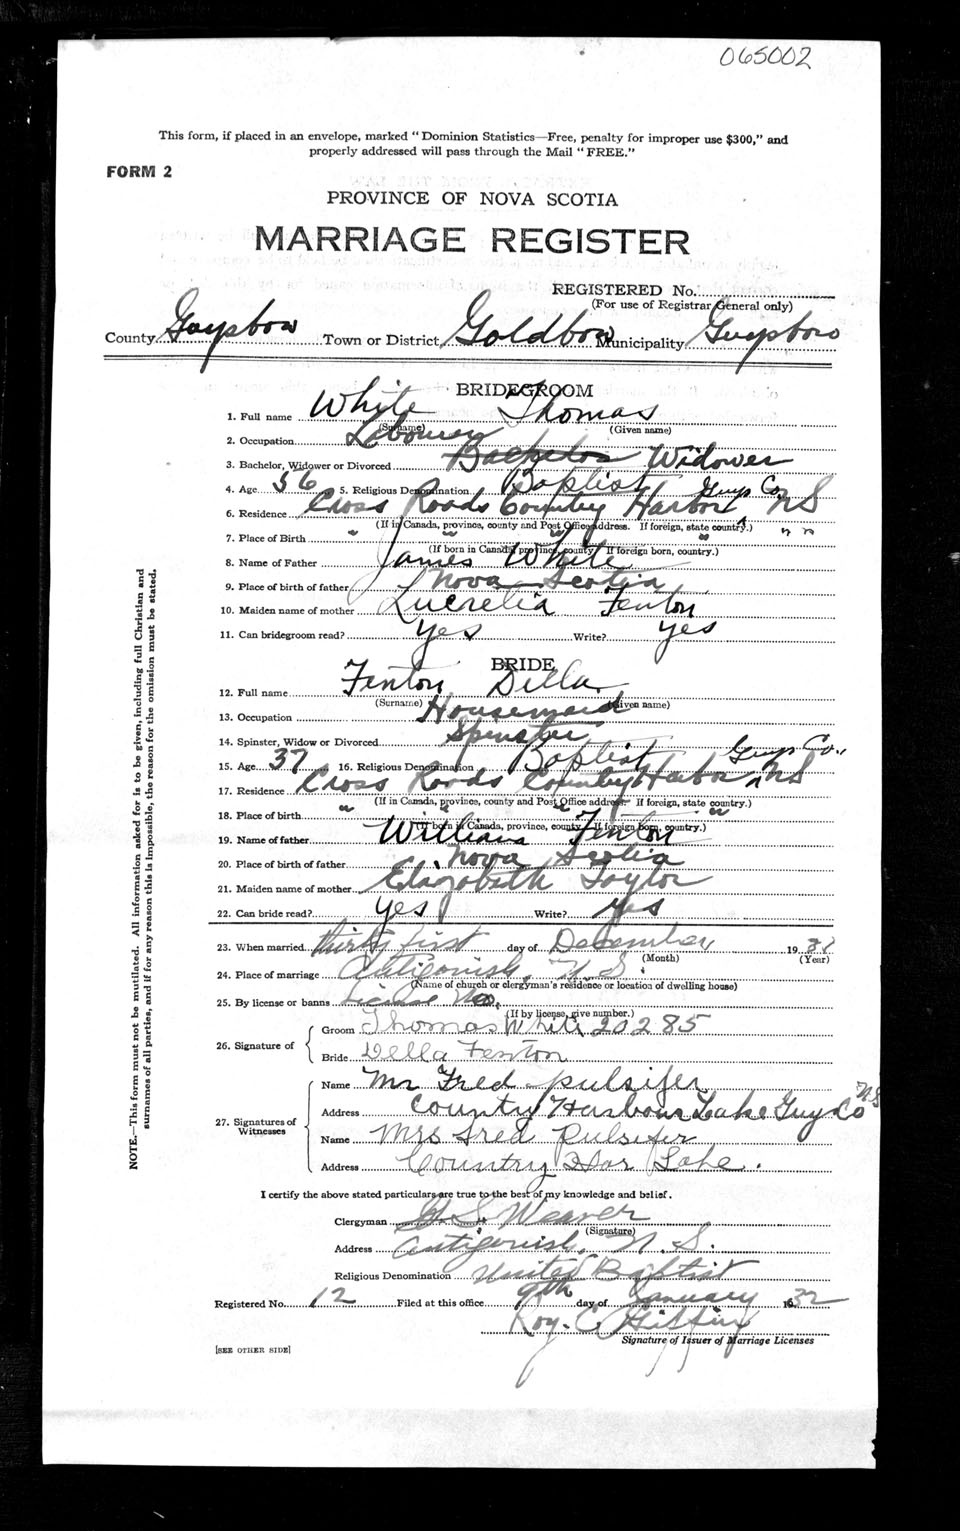 065002
This form, if placed in an envelope, marked "Dominion Statistics—Free, penalty for improper use $300," and
properly addressed will pass through the Mail "FREE."
FORM 2
PROVINCE OF NOVA SCOTIA
MARRIAGE REGISTER
REGISTERED No.
(For use of Registrar General only)
County Guysboro Town or District Goldboro Municipality Guysboro
BRIDEGROOM
1. Full name White Thomas
(Surname) (Given name)
2. Occupation Labourer
3. Bachelor, Widower or Divorced Bachelor Widower
4. Age 56 5. Religious Denomination Baptist
6. Residence Cross Roads Country Harbor Guys Co. NS
(If in Canada, province, county and Post Office address. If foreign, state country.)
7. Place of Birth " " " " " "
(If born in Canada, province, county. If foreign born, country.)
8. Name of Father James White
9. Place of birth of father Nova Scotia
10. Maiden name of mother Lucretia Fenton
11. Can bridegroom read? yes Write? yes
BRIDE
12. Full name Fenton Della
(Surname) (Given name)
13. Occupation Housemaid
14. Spinster, Widow or Divorced Spinster
15. Age 37 16. Religious Denomination Baptist
17. Residence Cross Roads Country Harbor Guys Co., NS
(If in Canada, province, county and Post Office address. If foreign, state country.)
18. Place of birth " " " "
(If born in Canada, province, county. If foreign born, country.)
19. Name of father William Fenton
20. Place of birth of father Nova Scotia
21. Maiden name of mother Elizabeth Taylor
22. Can bride read? yes Write? yes
23. When married thirty first day of December 1931
(Month) (Year)
24. Place of marriage Antigonish, N.S.
(Name of church or clergyman's residence or location of dwelling house)
25. By license or banns License No.
(If by license, give number.)
26. Signature of
Groom Thomas White 20285
Bride Della Fenton
27. Signatures of Witnesses
Name Mr Fred pulsifer
Address Country Harbour Lake Guy Co N.S
Name Mrs Fred Pulsifer
Address Country Har Lake.
I certify the above stated particulars are true to the best of my knowledge and belief.
Clergyman S. Weaver
(Signature)
Address Antigonish, N.S.
Religious Denomination United Baptist
Registered No. 12 Filed at this office 9th day of January 1932
Roy. C. Giffin
Signature of Issuer of Marriage Licenses
[SEE OTHER SIDE]
NOTE.—This form must not be mutilated. All information asked for is to be given, including full Christian and
surnames of all parties, and if for any reason this is impossible, the reason for the omission must be stated.